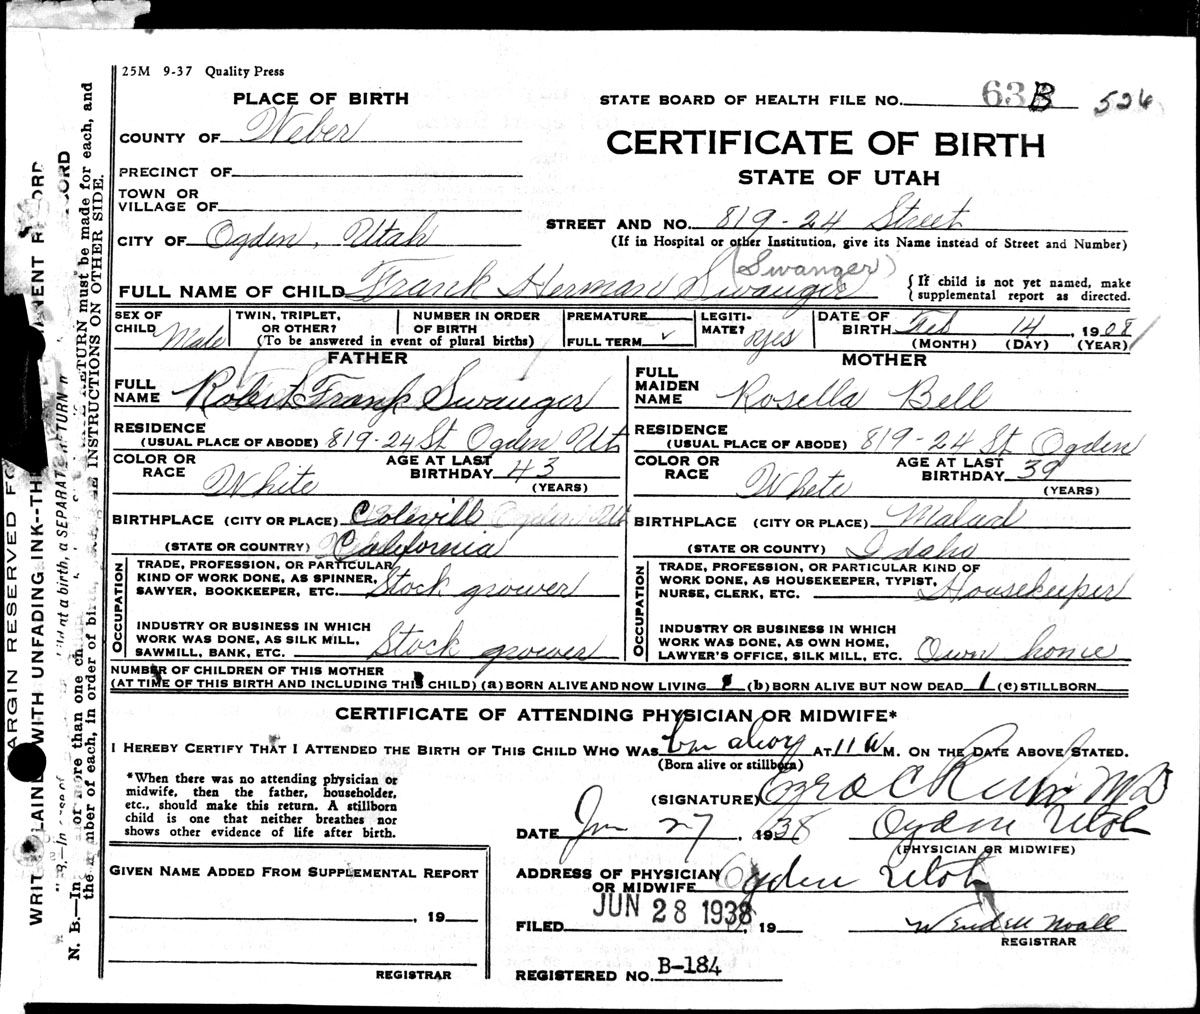 25M 9-37 Quality Press
PLACE OF BIRTH
STATE BOARD OF HEALTH FILE NO. 63 B 526
COUNTY OF Weber
CERTIFICATE OF BIRTH
PRECINCT OF
STATE OF UTAH
TOWN OR
VILLAGE OF
STREET AND NO. 819-24 Street
CITY OF Ogden, Utah
(If in Hospital or other Institution, give its Name instead of Street and Number)
(Swanger)
FULL NAME OF CHILD Frank Herman Swanger
{ If child is not yet named, make
supplemental report as directed.
SEX OF
CHILD Male
TWIN, TRIPLET,
OR OTHER?
NUMBER IN ORDER
OF BIRTH
(To be answered in event of plural births)
PREMATURE
FULL TERM ✓
LEGITI-
MATE? yes
DATE OF
BIRTH Feb 14, 1908
(MONTH) (DAY) (YEAR)
FATHER
FULL
NAME Robert Frank Swanger
RESIDENCE
(USUAL PLACE OF ABODE) 819-24 St Ogden Ut
COLOR OR
RACE White
AGE AT LAST
BIRTHDAY 43
(YEARS)
BIRTHPLACE (CITY OR PLACE) Colevill
(STATE OR COUNTRY) California
OCCUPATION
TRADE, PROFESSION, OR PARTICULAR
KIND OF WORK DONE, AS SPINNER,
SAWYER, BOOKKEEPER, ETC. Stock grower
INDUSTRY OR BUSINESS IN WHICH
WORK WAS DONE, AS SILK MILL,
SAWMILL, BANK, ETC. Stock grower
MOTHER
FULL
MAIDEN
NAME Rosella Bell
RESIDENCE
(USUAL PLACE OF ABODE) 819-24 St Ogden
COLOR OR
RACE White
AGE AT LAST
BIRTHDAY 39
(YEARS)
BIRTHPLACE (CITY OR PLACE) Malad
(STATE OR COUNTY) Idaho
OCCUPATION
TRADE, PROFESSION, OR PARTICULAR KIND OF
WORK DONE, AS HOUSEKEEPER, TYPIST,
NURSE, CLERK, ETC. Housekeeper
INDUSTRY OR BUSINESS IN WHICH
WORK WAS DONE, AS OWN HOME,
LAWYER'S OFFICE, SILK MILL, ETC. Own home
NUMBER OF CHILDREN OF THIS MOTHER
(AT TIME OF THIS BIRTH AND INCLUDING THIS CHILD) (a) BORN ALIVE AND NOW LIVING (b) BORN ALIVE BUT NOW DEAD 1 (c) STILLBORN
CERTIFICATE OF ATTENDING PHYSICIAN OR MIDWIFE*
I HEREBY CERTIFY THAT I ATTENDED THE BIRTH OF THIS CHILD WHO WAS AT 11 A M. ON THE DATE ABOVE STATED.
(Born alive or stillborn)
*When there was no attending physician or
midwife, then the father, householder,
etc., should make this return. A stillborn
child is one that neither breathes nor
shows other evidence of life after birth.
(SIGNATURE) Ezra C MD
DATE 27, 1938 Ogden Utah
(PHYSICIAN OR MIDWIFE)
GIVEN NAME ADDED FROM SUPPLEMENTAL REPORT
, 19
REGISTRAR
ADDRESS OF PHYSICIAN
OR MIDWIFE Ogden Utah
FILED JUN 28 1938, 19
Wendell Noall
REGISTRAR
REGISTERED NO. B-184
ARGIN RESERVED FO
WITH UNFADING INK--TH
N. B.—In
ore than one ch
RETURN must be made for each, and
the number of each, in order of birth
INSTRUCTIONS ON OTHER SIDE.